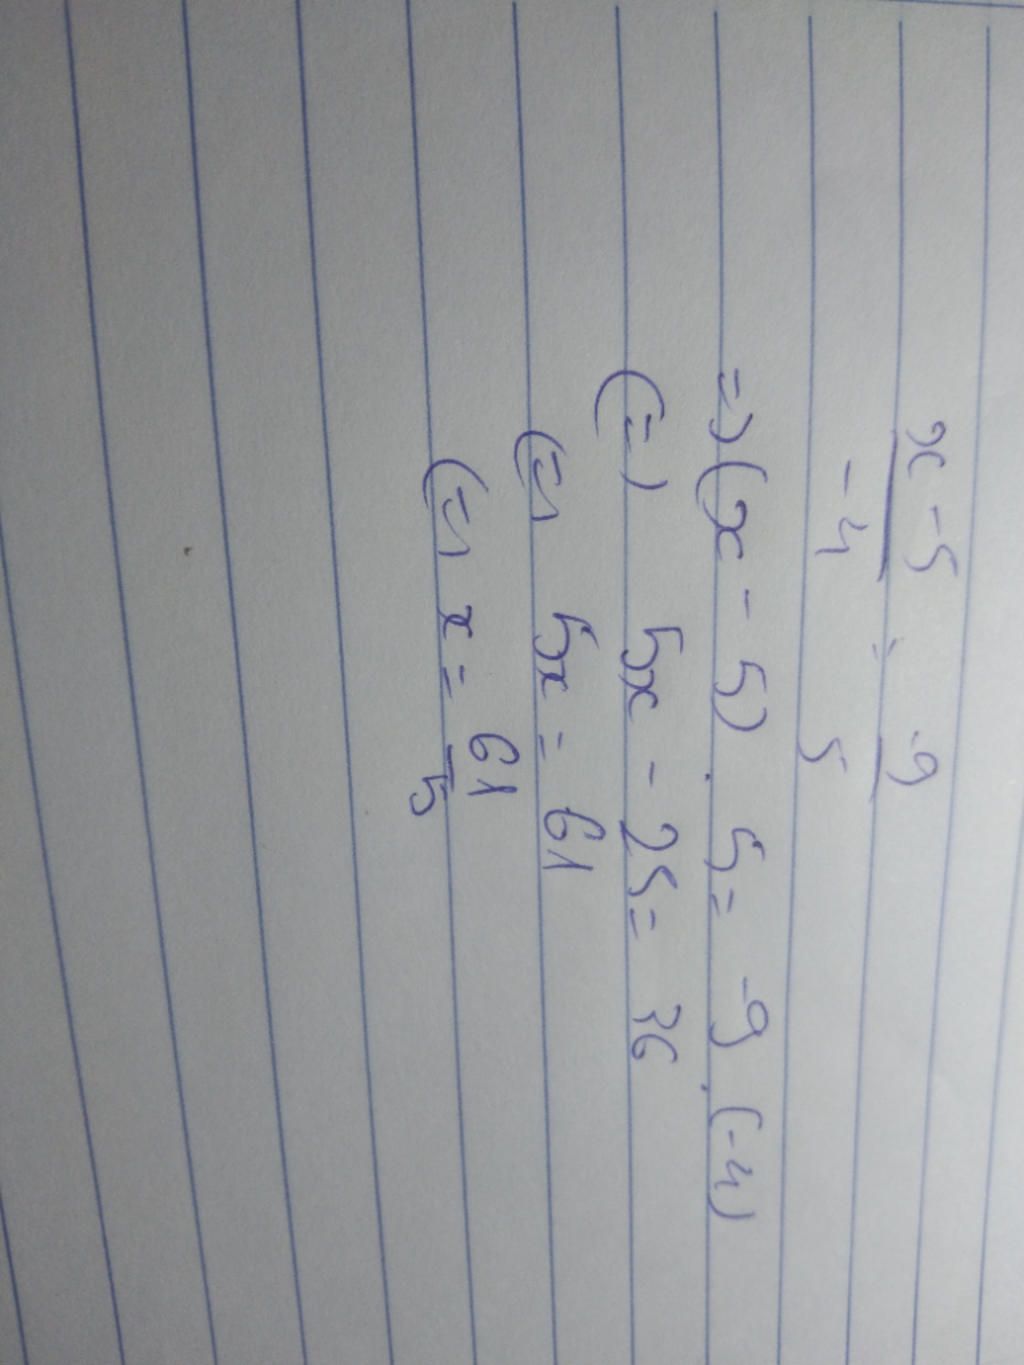 x - 5 / -4 = -9 / 5
=> (x - 5) . 5 = -9 . (-4)
(=) 5x - 25 = 36
(=) 5x = 61
(=) x = 61 / 5